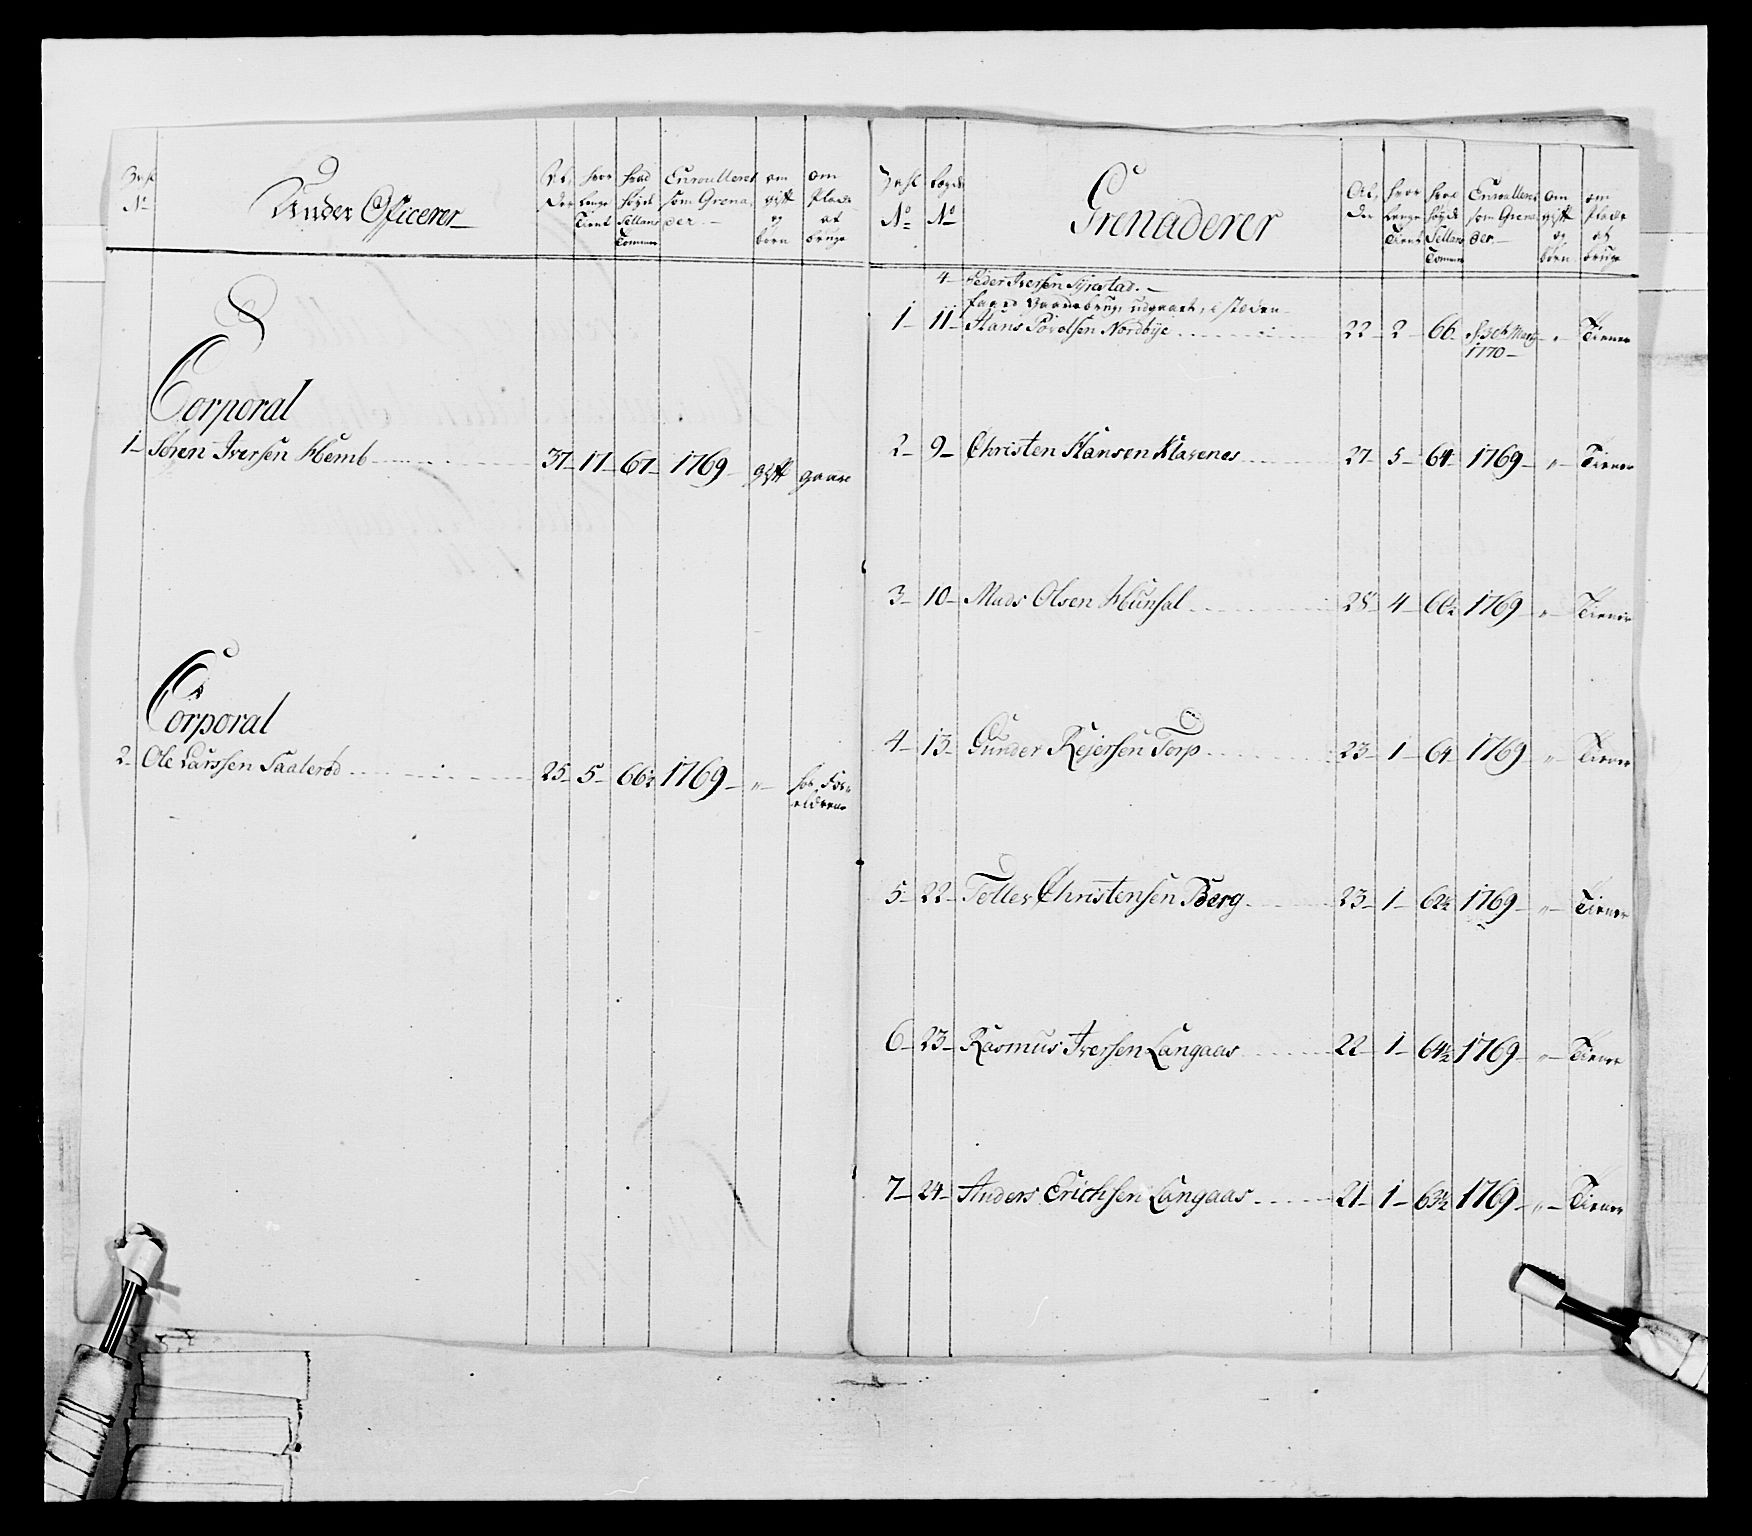 No
Under Officerer
Al,
der
hvor
lenge
Tient
hvad
høyde
Sellans
Tommer
Enroulleret
som Grena,
der
om
gift
og
børn
om
Plads
at
bruge
Corporal
1 Søren Iversen Hemb 37 17 67 1769 gift gaard
Corporal
2 Ole Larssen Saalerød 25 5 66½ 1769 " hos For,
ældrene
No
Lægds
No
Grenaderer
Al,
der
hvor
lenge
Tient
hvad
høyde
Sellans
Tommer
Enroulleret
som Grena
der
om
gift
og
børn
om
Plads
at
bruge
4 Peder Iversen
1 11 Hans Povelsen Nordbye 22 2 66 Marty " Tiener
1770
2 9 Christen Hansen Klavenes 27 5 64 1769 " Tiener
3 10 Mads Olsen Hunsal 28 4 1769 " Tiener
4 13 Gunder Rejersen Torp 23 1 64 1769 " Tiener
5 22 Tellef Christensen Berg 23 1 62½ 1769 " Tiener
6 23 Rasmus Iversen Langaas 22 1 64½ 1769 " Tiener
7 24 Anders Erichsen Langaas 21 1 63½ 1769 " Tiener